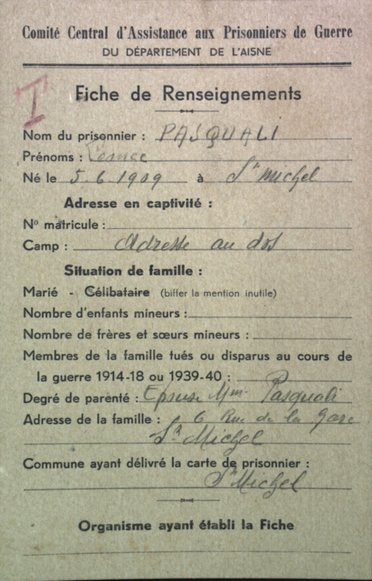 Comité Central d'Assistance aux Prisonniers de Guerre
DU DÉPARTEMENT DE L'AISNE
I
Fiche de Renseignements
Nom du prisonnier : PASQUALI
Prénoms :
Né le 5.6.1909 à St Michel
Adresse en captivité :
No matricule :
Camp : Adresse au dos
Situation de famille :
Marié - Célibataire (biffer la mention inutile)
Nombre d'enfants mineurs :
Nombre de frères et sœurs mineurs :
Membres de la famille tués ou disparus au cours de
la guerre 1914-18 ou 1939-40 :
Degré de parenté : Epouse Mme Pasquali
Adresse de la famille : 6 Rue de la Gare
St Michel
Commune ayant délivré la carte de prisonnier :
St Michel
Organisme ayant établi la Fiche